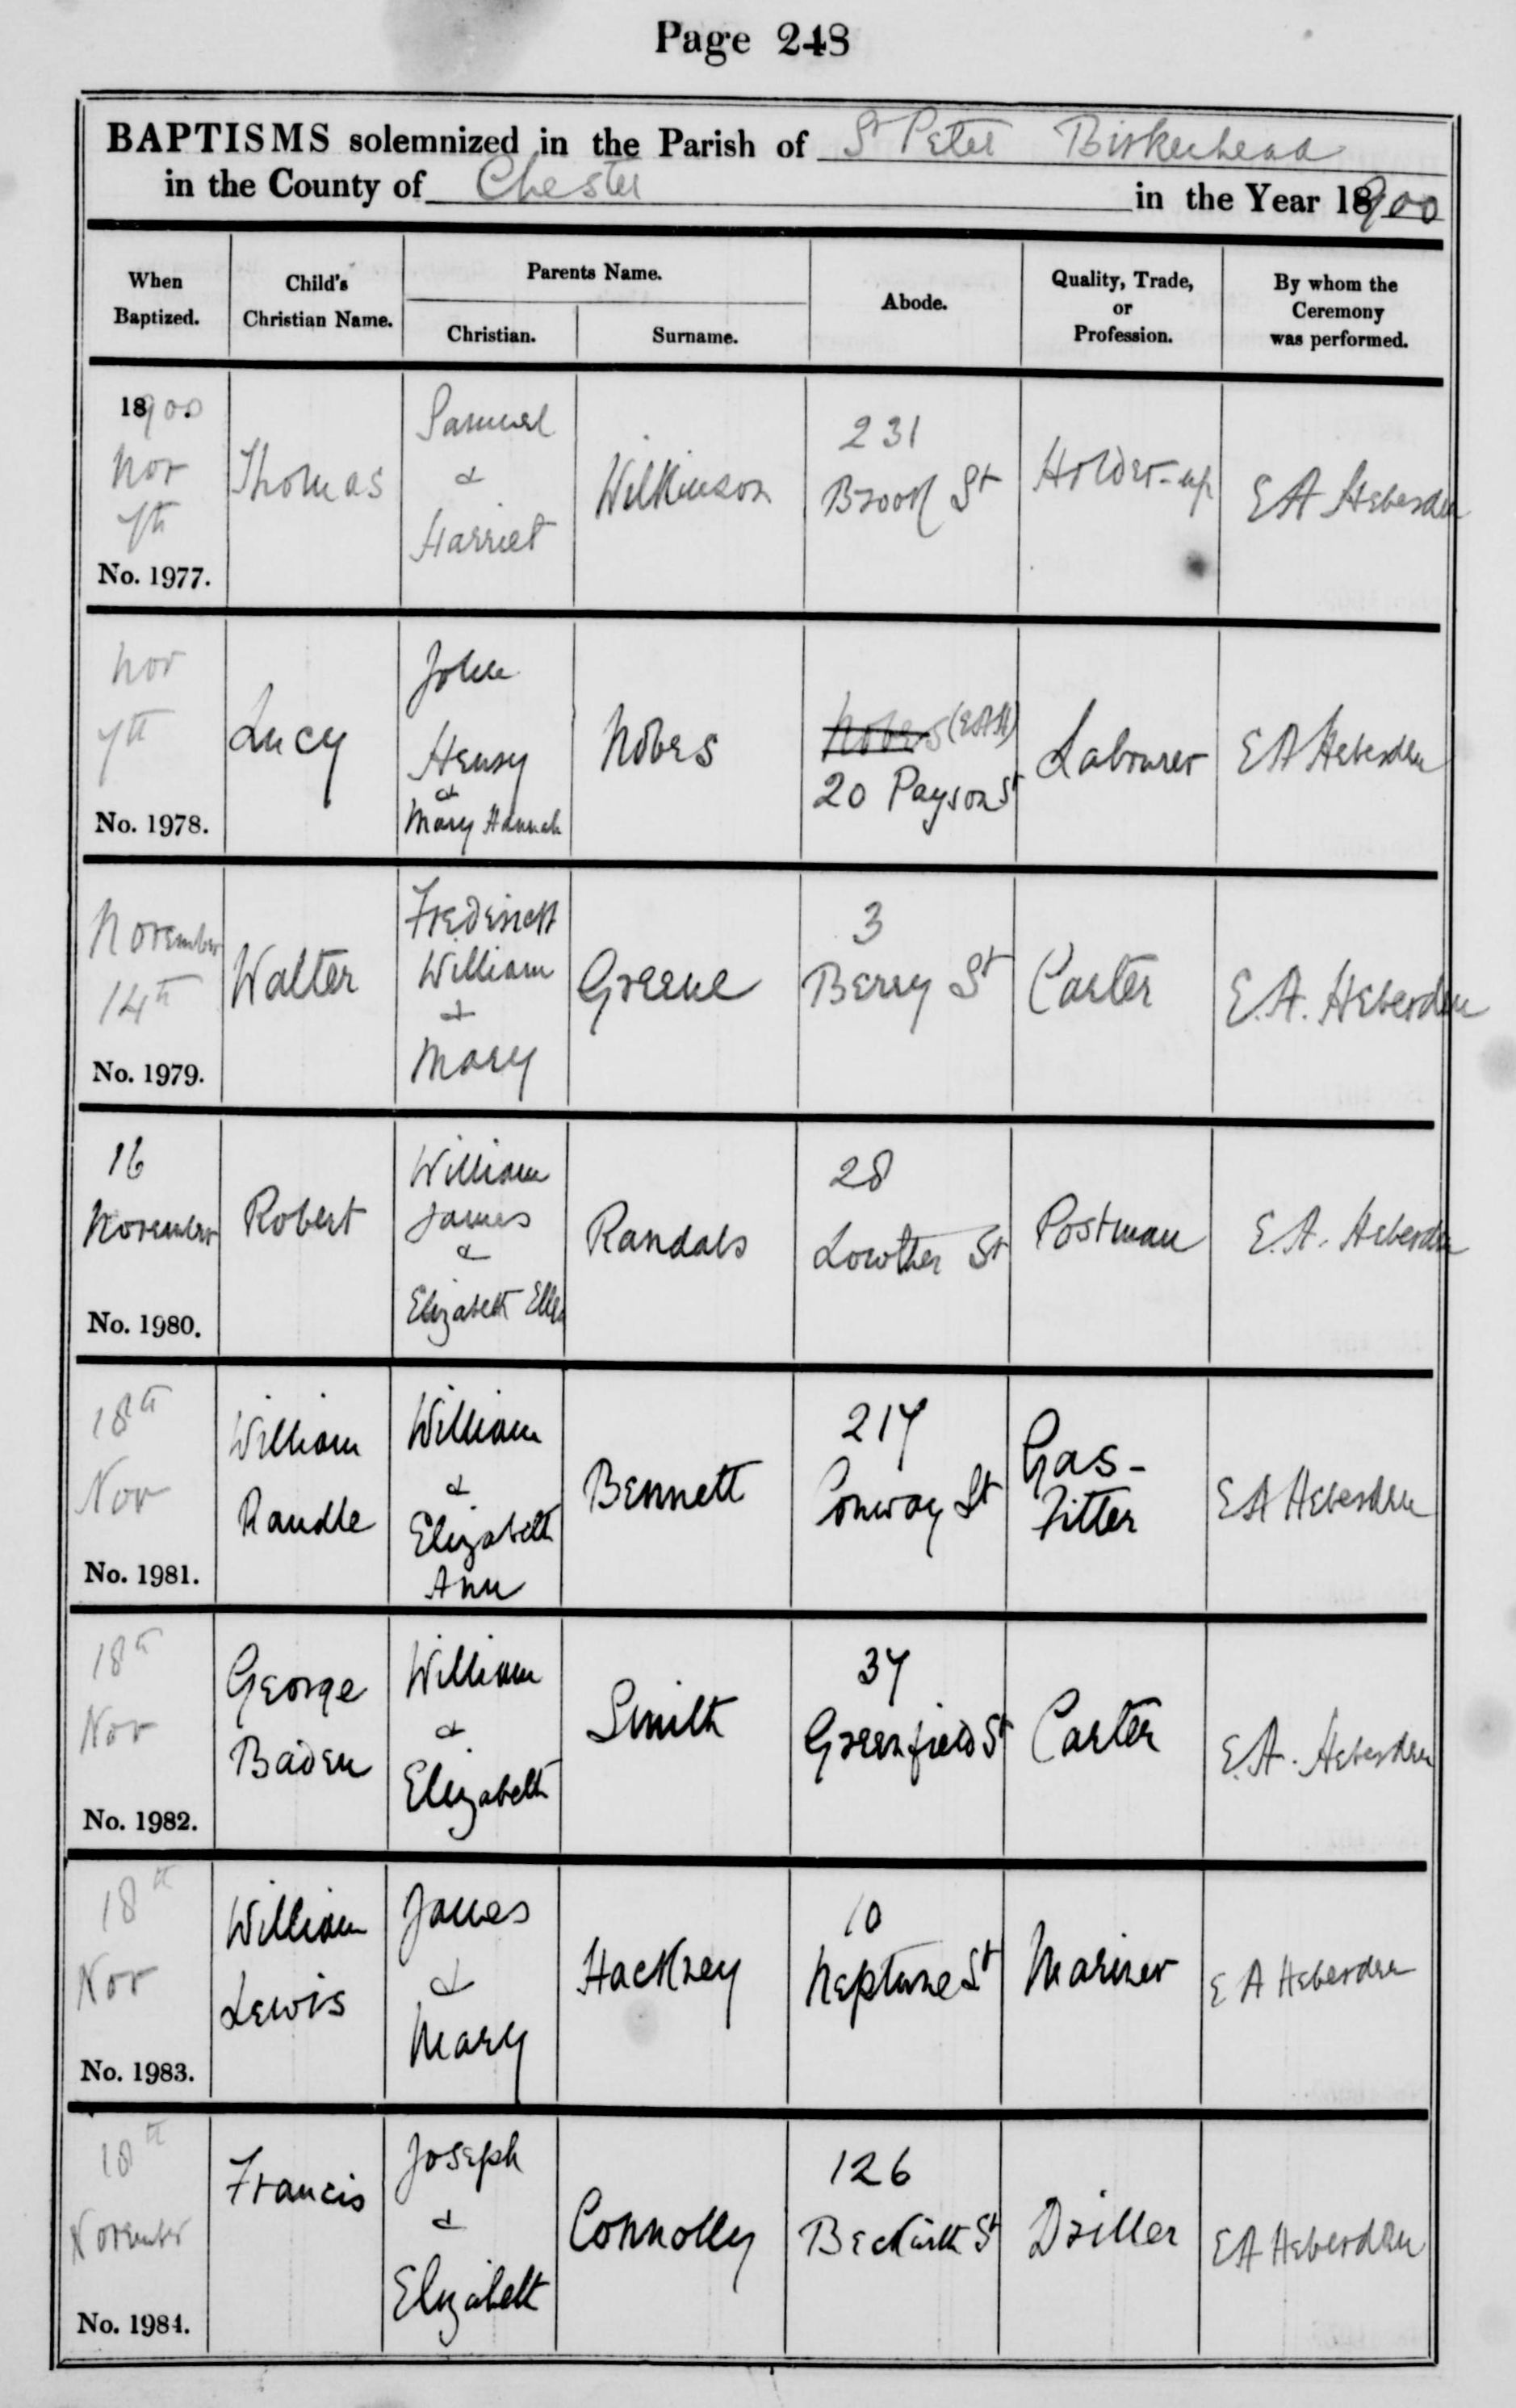 Page 248
BAPTISMS solemnized in the Parish of St Peter Birkenhead
in the County of Chester in the Year 18900
When Baptized.
Child's Christian Name.
Parents Name.
Christian.
Surname.
Abode.
Quality, Trade, or Profession.
By whom the Ceremony was performed.
18900
Nov
7th
No. 1977.
Thomas
Samuel
&
Harriet
Wilkinson
231
Brook St
Holder-up
E A Heberden
Nov
7th
No. 1978.
Lucy
John
Henry
&
Mary Hannah
Nobes
Nobes (EAH)
20 Payson St
Labourer
E A Heberden
November
14th
No. 1979.
Walter
Frederick
William
&
Mary
Greene
3
Berry St
Carter
E. A. Heberden
16
November
No. 1980.
Robert
William
James
&
Elizabeth Ellen
Randals
28
Lowther St
Postman
E. A. Heberden
18th
Nov
No. 1981.
William
Randle
William
&
Elizabeth
Ann
Bennett
217
Conway St
Gas-
Fitter
E A Heberden
18th
Nov
No. 1982.
George
Baden
William
&
Elizabeth
Smith
37
Greenfield St
Carter
E. A. Heberden
18th
Nov
No. 1983.
William
Lewis
James
&
Mary
Hackney
10
Neptune St
Mariner
E A Heberden
18th
November
No. 1984.
Francis
Joseph
&
Elizabeth
Connolly
126
Beckwith St
Driller
E A Heberden